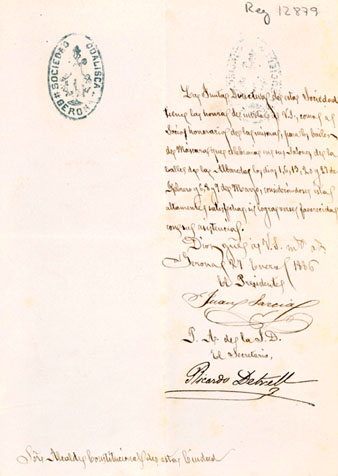 Reg 12879
SOCIEDAD ODALISCA
GERONA
La Junta Directiva de esta Sociedad
tiene la honra de invitar á V.S., como á
Socio honorario de la misma, para los bailes
de Máscaras que celebrará en su salon de la
calle de las Albaredas los dias 13, 20 y 27 de
Febrero y 2, 7 de Marzo, considerándose
altamente satisfecha si lograrse favorecida
con su asistencia.
Dios gue á V.S. m. a.
Gerona 27 Enero 1886
El Presidente,
Juan Garcia
P. A. de la J.D.
El Secretario,
Ricardo
Sor. Alcalde Constitucional de esta Ciudad